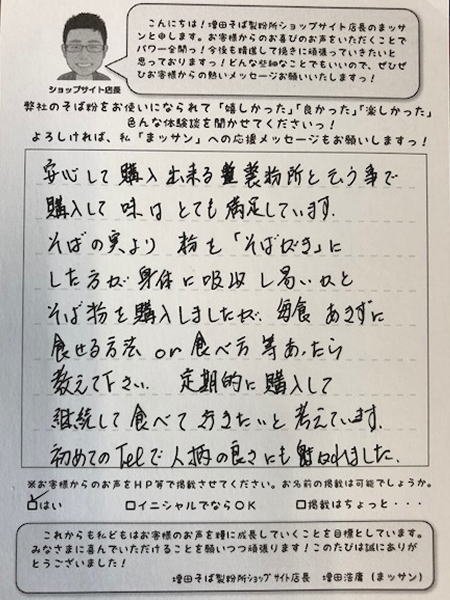 こんにちは！増田そば製粉所ショップサイト店長のまッサ
ンと申します。お客様からのお喜びのお声をいただくことで
パワー全開っ！今後も精進して挽きに頑張っていきたいと
思っておりますっ！どんな些細なことでもいいので、ぜひぜ
ひお客様からの熱いメッセージお願いいたしますっ！
ショップサイト店長
弊社のそば粉をお使いになられて「嬉しかった」「良かった」「楽しかった」
色んな体験談を聞かせてくださいっ！
よろしければ、私「まッサン」への応援メッセージもお願いしますっ！
安心して購入出来る製粉所と云う事で
購入して味はとても満足しています。
そばの実より粉を「そばがき」に
した方が身体に吸収し易いかと
そば粉を購入しましたが、毎食あきずに
食せる方法or食べ方等あったら
教えて下さい。定期的に購入して
継続して食べて行きたいと考えています。
初めてのTelで人柄の良さにも魅かれました。
※お客様からのお声をHP等で掲載させてください。お名前の掲載は可能でしょうか。
☑はい □イニシャルでならOK □掲載はちょっと・・・
これからも私どもはお客様のお声を糧に成長していくことを目標としています。
みなさまに喜んでいただけることを願いつつ頑張ります！このたびは誠にありが
とうございました！
増田そば製粉所ショップサイト店長 増田浩庸（まッサン）